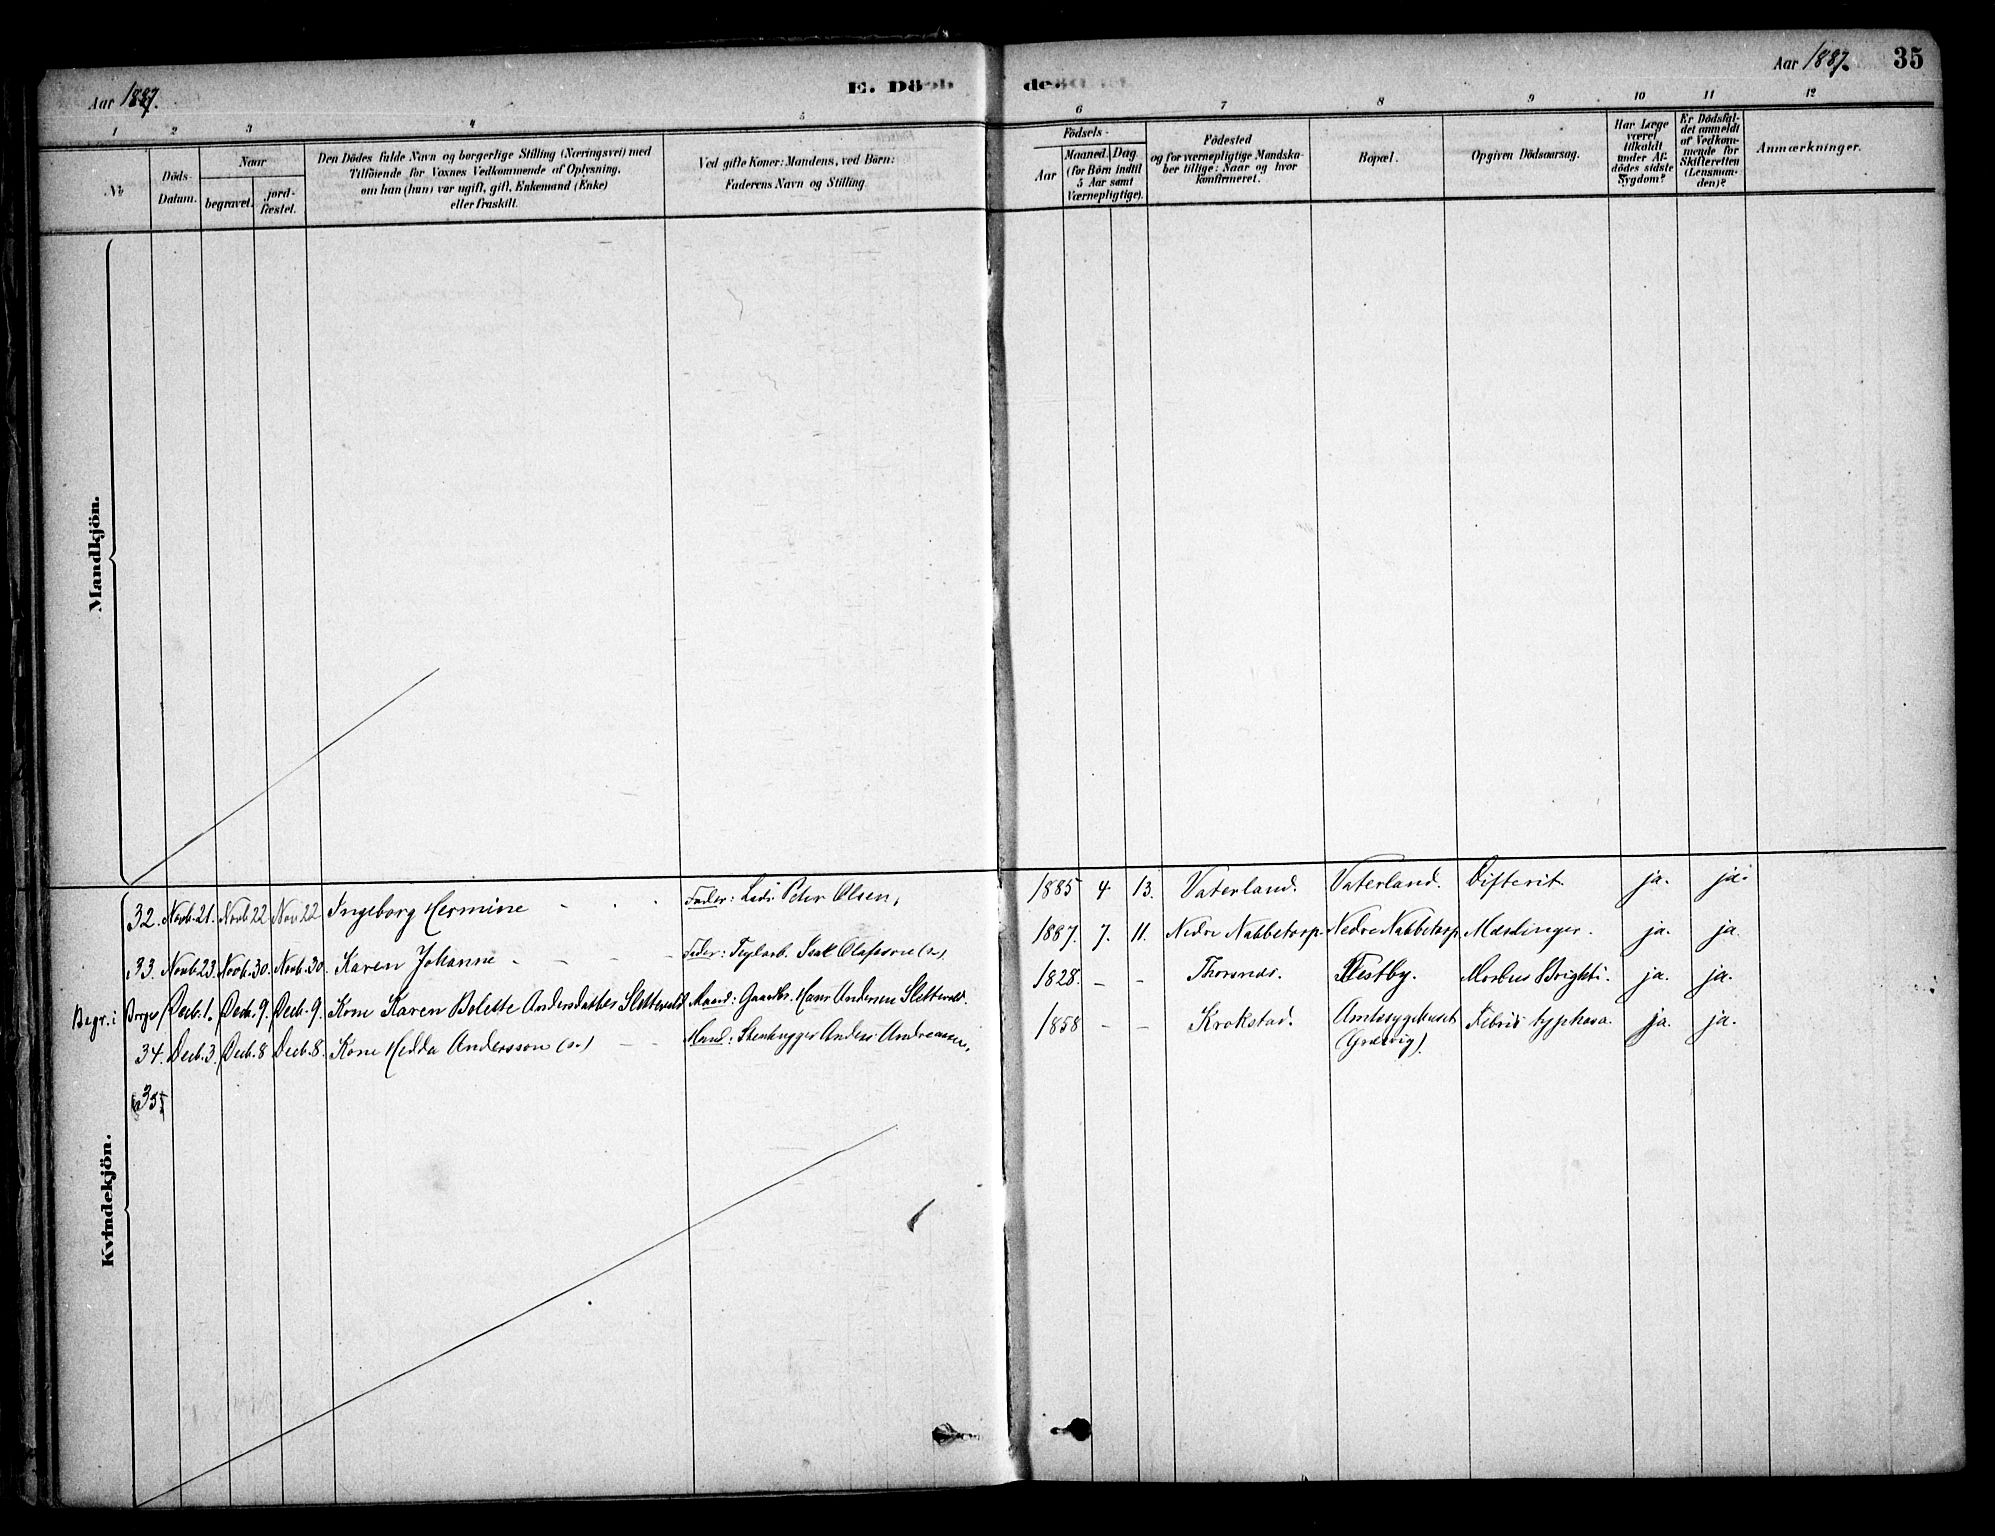 Aar 1887.
E. Döde
Aar 1887.
35
1 2 3 4 5 6 7 8 9 10 11 12
No
Döds-
Datum.
Naar
begravet.
jord-
fæstet.
Den Dödes fulde Navn og borgerlige Stilling (Næringsvei) med
Tilföiende for Voxnes Vedkommende af Oplysning,
om han (hun) var ugift, gift, Enkemand (Enke)
eller fraskilt.
Ved gifte Koner: Mandens, ved Börn:
Faderens Navn og Stilling
Födsels-
Aar
Maaned. Dag
(for Börn indtil
5 Aar samt
Værnepligtige).
Födested
og for værnepligtige Mandska-
ber tillige: Naar og hvor
konfirmeret.
Bopæl.
Opgiven Dödsaarsag.
Har Læge
været
tilkaldt
under Af-
dödes sidste
Sygdom?
Er Dödsfal-
det anmeldt
af Vedkom-
mende for
Skifteretten
(Lensman-
den)?
Anmærkninger.
Mandkjön.
Kvindekjön.
32. Novb. 21. Novb 22 Nov 22 Ingeborg Hermine - - - Fader: Peter Olsen, 1885 4. 13. Vaterland. Vaterland. Difterit. ja. ja.
33. Novb. 23. Novb. 30. Novb. 30. Karen Johanne - - - - Fader: Teglarb. Isak Olafsson (s.) 1887. 7. 11. Nedre Nabbetorp Nedre Nabbetorp Mæslinger. ja. ja.
Begr. i Borge Decb. 1. Decb. 9. Decb. 9. Kone Karen Bolette Andersdatter Slettevold Mand: Gaardbr. Hans Andersen Slettevold. 1828. - - Thorsnes. Testby. Morbus Brighti. ja. ja.
34. Decb. 3. Decb. 8 Decb. 8. Kone Hedda Andersson (s.) - - Mand: Stenhugger Anders Andreasen, 1858 - - Krokstad. Amtssygehuset
(Græsvig). Febris typhosa. ja. ja.
35